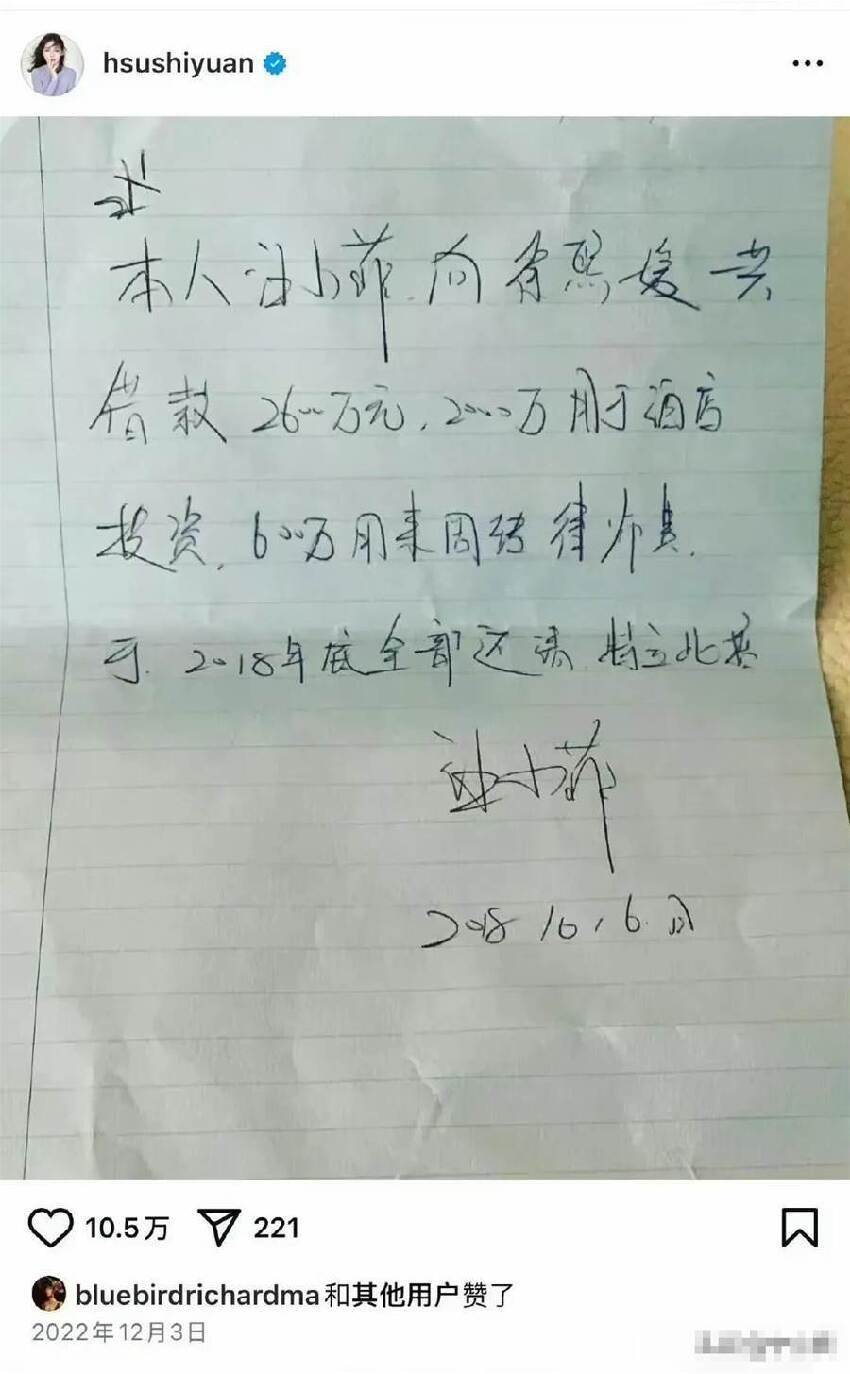 hsushiyuan
本人汪小菲向徐熙媛共
借款2600万元,2000万用于酒店
投资,600万用来周转律师费.
于.2018年底全部还清.特立此条
汪小菲
2018 10, 6.日
10.5万 221
bluebirdrichardma和其他用户赞了
2022年12月3日